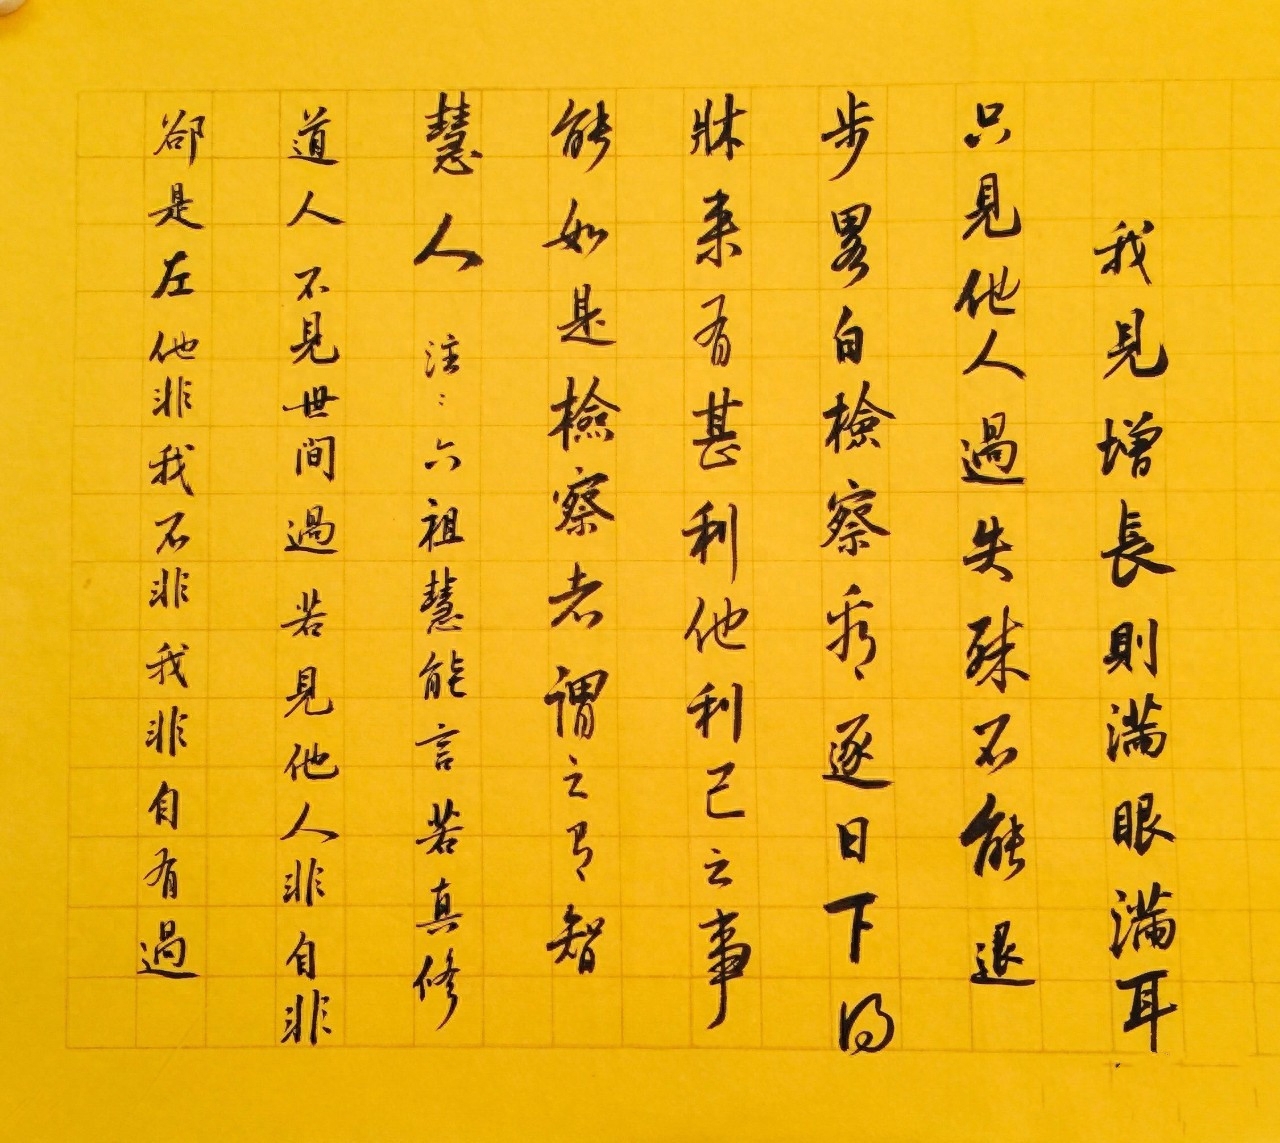 我見增長則滿眼滿耳
只見他人過失殊不能退
步畧自檢察看逐日下得
牀來有甚利他利己之事
能如是檢察者謂之有智
慧人 注：六祖慧能言若真修
道人不見世間過若見他人非自非
卻是左他非我不非我非自有過